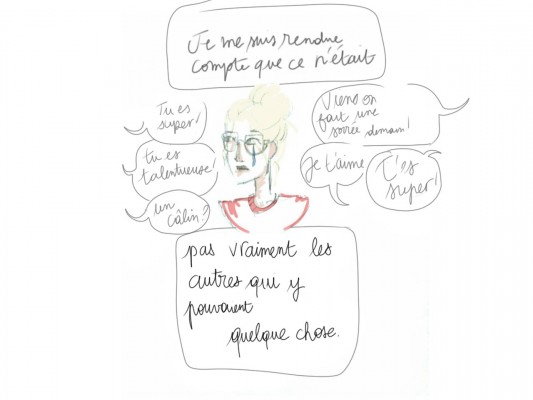 Je me suis rendue
compte que ce n'était
Tu es
super!
Tu es
talentueuse
un
câlin?
Viens on
fait une
soirée demain!
Je t'aime
T'es
super!
pas vraiment les
autres qui y
pouvaient
quelque chose.